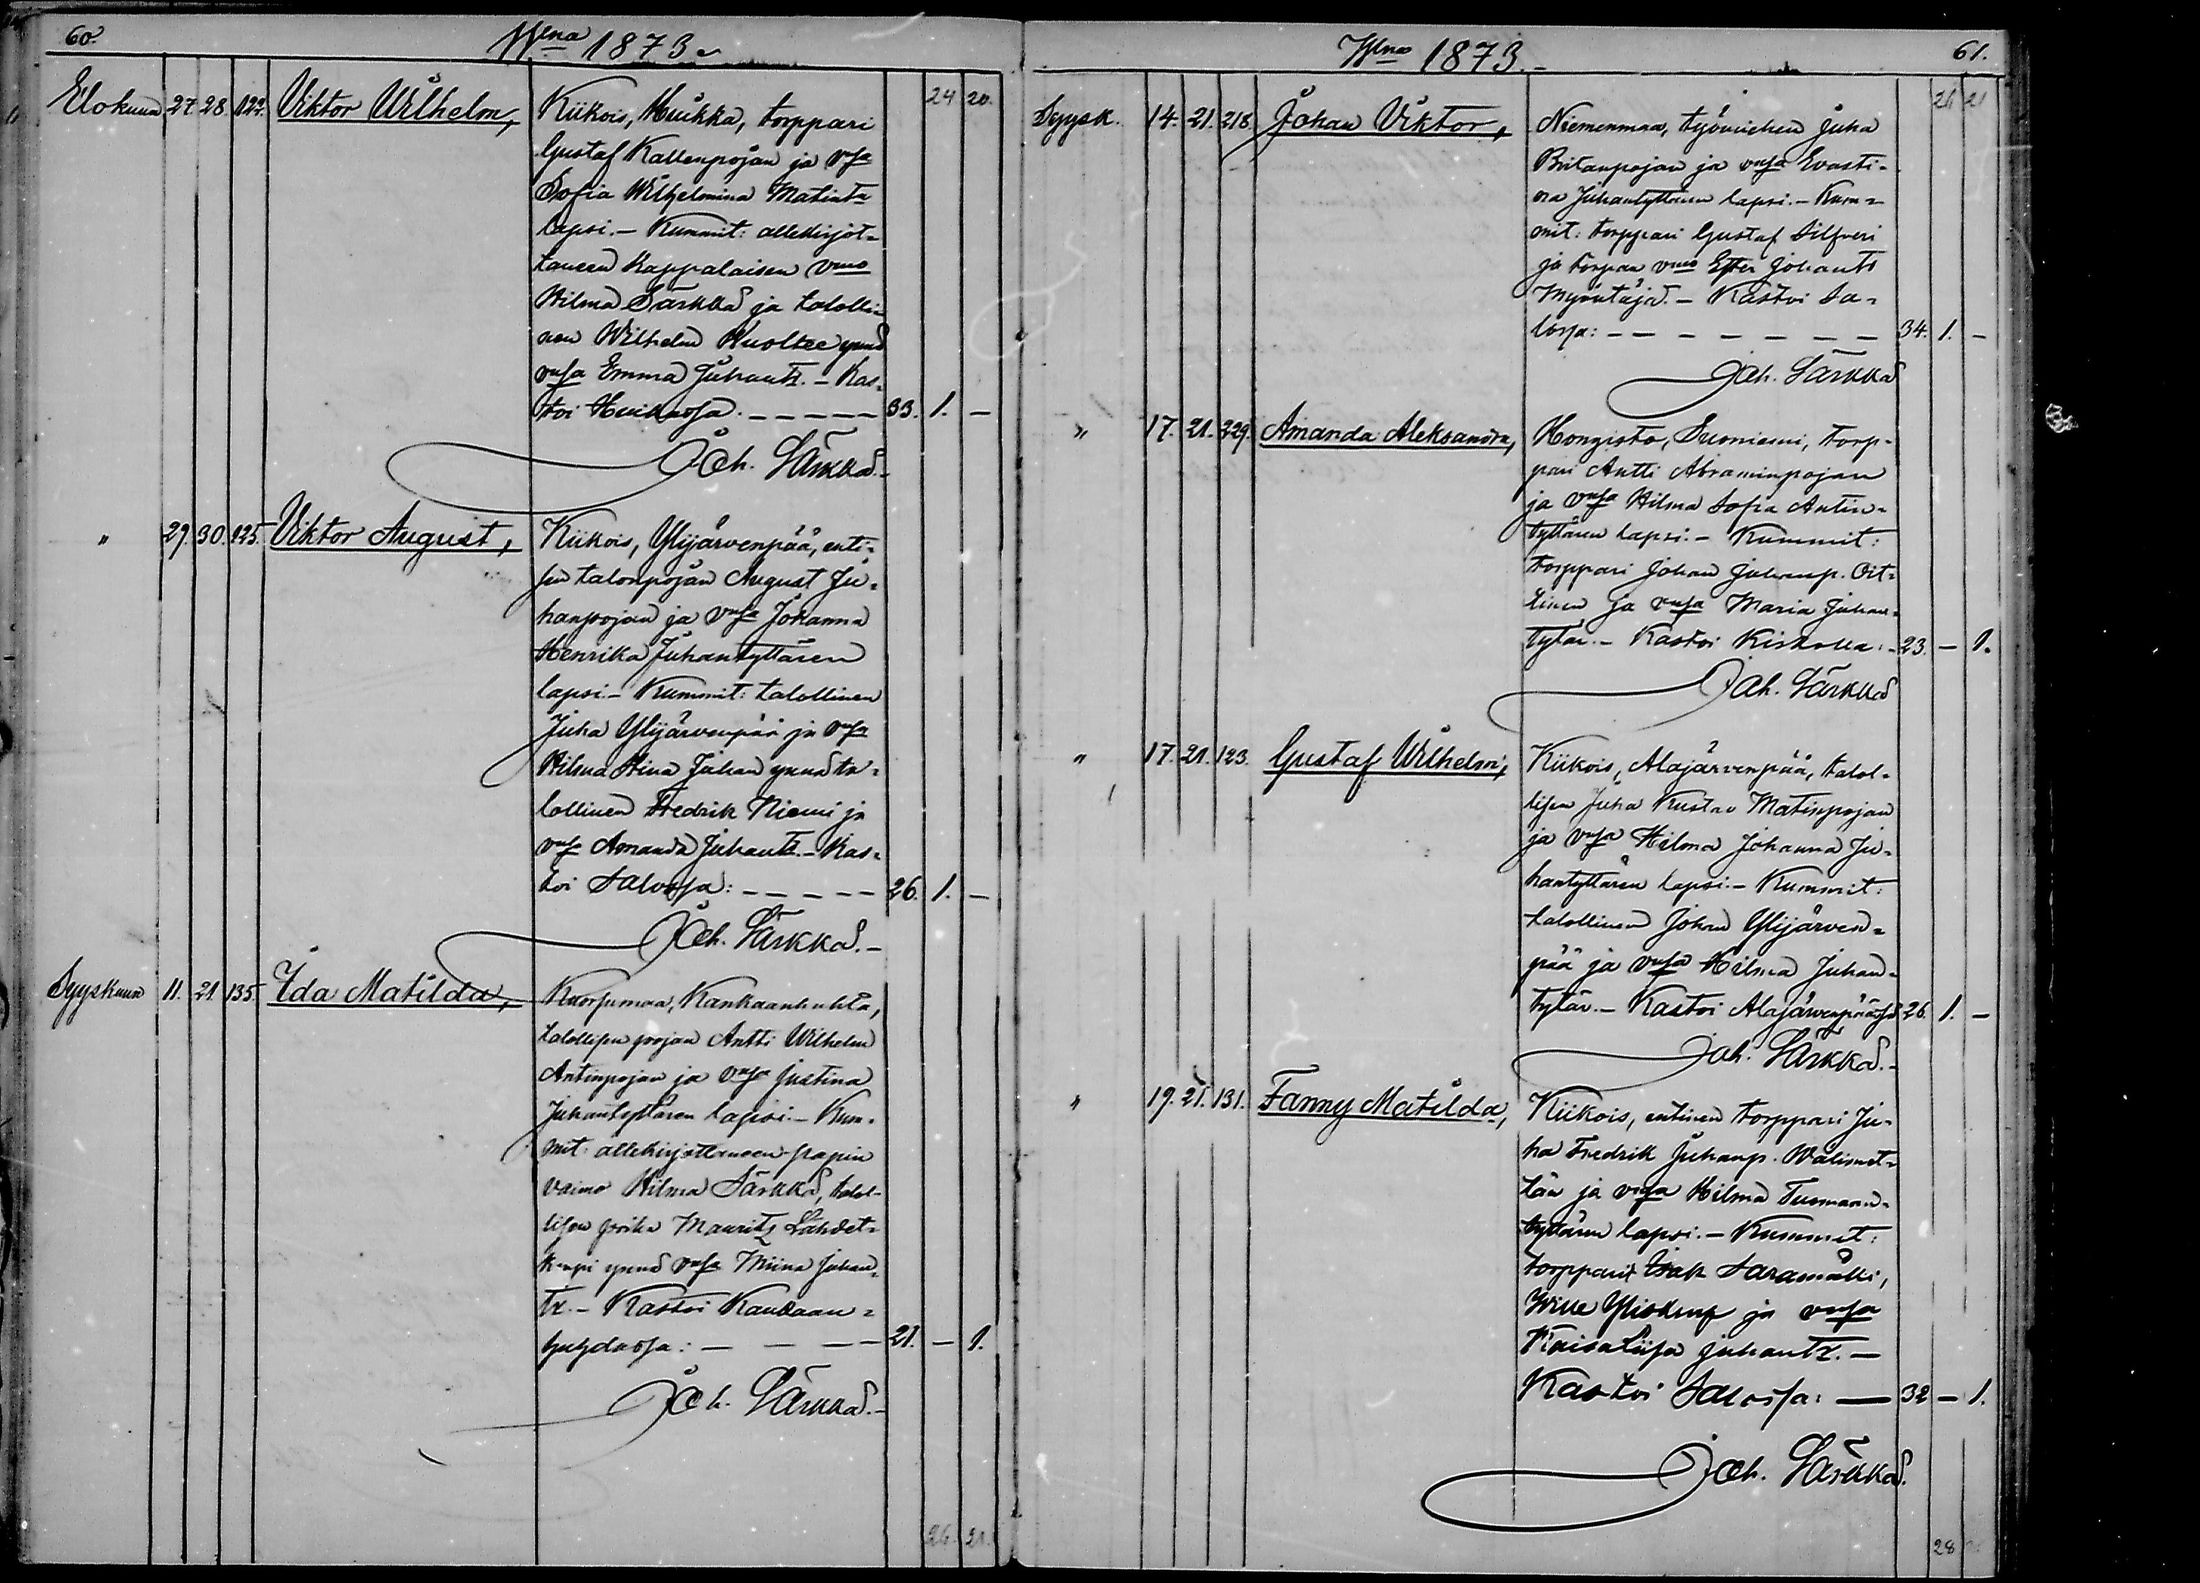 60.
Wna 1873.
24 20.
Elokuun 27. 28. 122. Viktor Wilhelm, Kiikois, Huikka, torppari
Gustaf Kallenpojan ja vsa
Sofia Wilhelmina Matint:
lapsi. – Kummit: allekirjot=
taneen Kappalaisen vmo
Hilma Särkkä ja talolli=
nen Wilhelm ynnä
vmsa Emma Juhantr. – Kas=
toi Huikassa. – – – – – 33. 1. –
Joh. Särkkä.
" 29. 30. 125. Viktor August, Kiikois, Ylijärvenpää, enti=
sen talonpojan August Ju=
hanpojan ja vmsa Johanna
Henrika Juhantyttären
lapsi. – Kummit: talollinen
Juha Ylijärvenpää ja vmsa
Hilma Stina Juhan ynnä ta=
lollinen Fredrik Niemi ja
vmsa Amanda Juhantr. – Kas=
toi Salossa: – – – – – 26. 1. –
Joh. Särkkä. –
Syyskuun 11. 21. 135. Ida Matilda, Kuorsumaa, Kankaanhuhta,
talollisen pojan Antti Wilhelm
Antinpojan ja vmsa Justina
Juhantyttären lapsi. – Kum=
mit: allekirjottaneen papin
vaimo Hilma Särkkä, talol=
lisen poika Mauritz Lähdet=
ynnä vmsa Miina Juhan=
tr. – Kastoi Kankaan=
huhdassa: – – – – 21. – 1.
Joh. Särkkä. –
26. 21.
Wna 1873. –
61.
26 21
Syysk. 14. 21. 218. Johan Viktor, Niemenmaa, työmiehen Juha
ja vmsa Evasti=
na Juhantyttären lapsi. – Kum=
mit: torppari Gustaf Silfveri
ja torpan vmo Ester Johantr
Myöntäjä. – Kastoi Sa=
lossa: – – – – – – – 34. 1. –
Joh. Särkkä
" 17. 21. 229. Amanda Aleksandra, Hongisto, Suoniemi, torp=
pari Antti Abraminpojan
ja vmsa Hilma Sofia Antin=
tyttären lapsi. – Kummit:
torppari Johan Juhanp. Oit=
tinen ja vmsa Maria Juhan=
tytär. – Kastoi Kirkolla: – 23. – 1.
Joh. Särkkä
" 17. 21. 123. Gustaf Wilhelm, Kiikois, Alajärvenpää, talol=
lisen Juha Kustav Matinpojan
ja vmsa Hilma Johanna Ju=
hantyttären lapsi. – Kummit:
talollinen Johan Ylijärven=
pää ja vmsa Hilma Juhan=
tytär. – Kastoi Alajärvenpäässä 26. 1. –
Joh. Särkkä. –
" 19. 21. 131. Fanny Matilda, Kiikois, entinen torppari Ju=
ha Fredrik Juhanp. Välimet=
tän ja vmsa Hilma Tuomaan=
tyttären lapsi. – Kummit:
torpparit Isak Saramäki,
Wille ja vmsa
Kaisa Liisa Juhantr. –
Kastoi Salossa: – 32 – 1.
Joh. Särkkä.
28